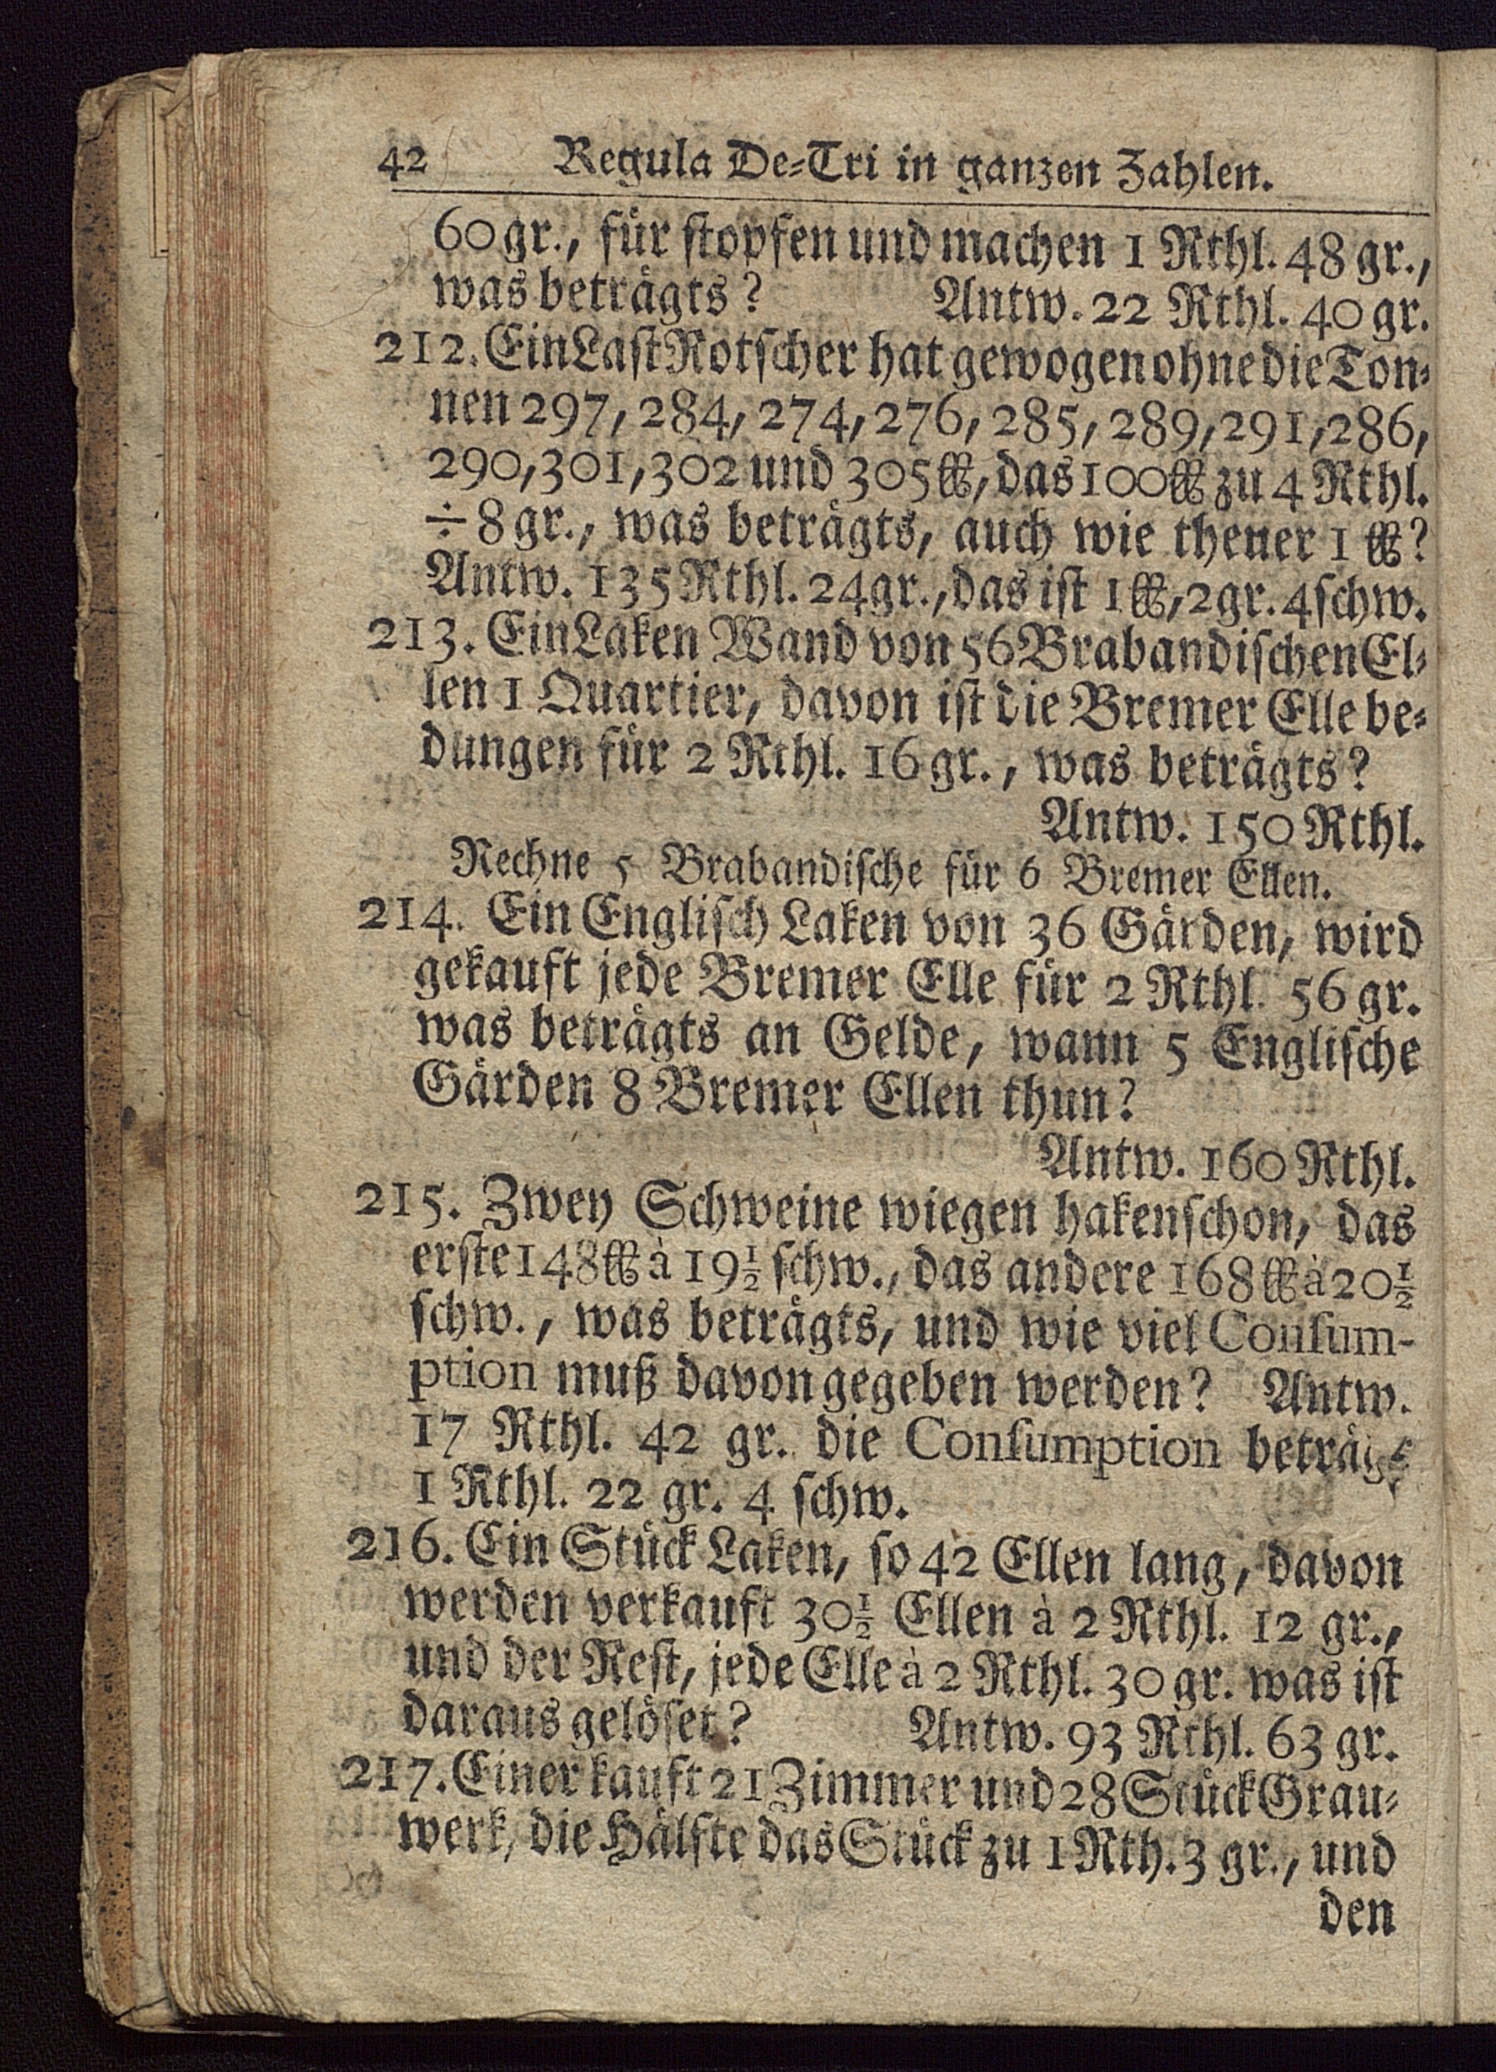 42 Regula De-Tri in ganzen Zahlen.
60 gr., für stopfen und machen 1 Rthl. 48 gr.,
was beträgts? Antw. 22 Rthl. 40 gr.
212. Ein Last Rotscher hat gewogen ohne die Ton-
nen 297, 284, 274, 276, 285, 289, 291, 286,
290, 301, 302 und 305 ℔, das 100 ℔ zu 4 Rthl.
÷ 8 gr., was beträgts, auch wie theuer 1 ℔?
Antw. 135 Rthl. 24 gr., das ist 1 ℔, 2 gr. 4 schw.
213. Ein Laken Wand von 56 Brabandischen El-
len 1 Quartier, davon ist die Bremer Elle be-
dungen für 2 Rthl. 16 gr., was beträgts?
Antw. 150 Rthl.
Rechne 5 Brabandische für 6 Bremer Ellen.
214. Ein Englisch Laken von 36 Gärden, wird
gekauft jede Bremer Elle für 2 Rthl. 56 gr.
was beträgts an Gelde, wann 5 Englische
Gärden 8 Bremer Ellen thun?
Antw. 160 Rthl.
215. Zwey Schweine wiegen hakenschon, das
erste 148 ℔ à 19½ schw., das andere 168 ℔ à 20½
schw., was beträgts, und wie viel Consum-
ption muß davon gegeben werden? Antw.
17 Rthl. 42 gr. die Consumption beträgt
1 Rthl. 22 gr. 4 schw.
216. Ein Stück Laken, so 42 Ellen lang, davon
werden verkauft 30½ Ellen à 2 Rthl. 12 gr.,
und der Rest, jede Elle à 2 Rthl. 30 gr. was ist
daraus gelöset? Antw. 93 Rthl. 63 gr.
217. Einer kauft 21 Zimmer und 28 Stück Grau-
werk, die Hälfte das Stück zu 1 Rth. 3 gr., und
den